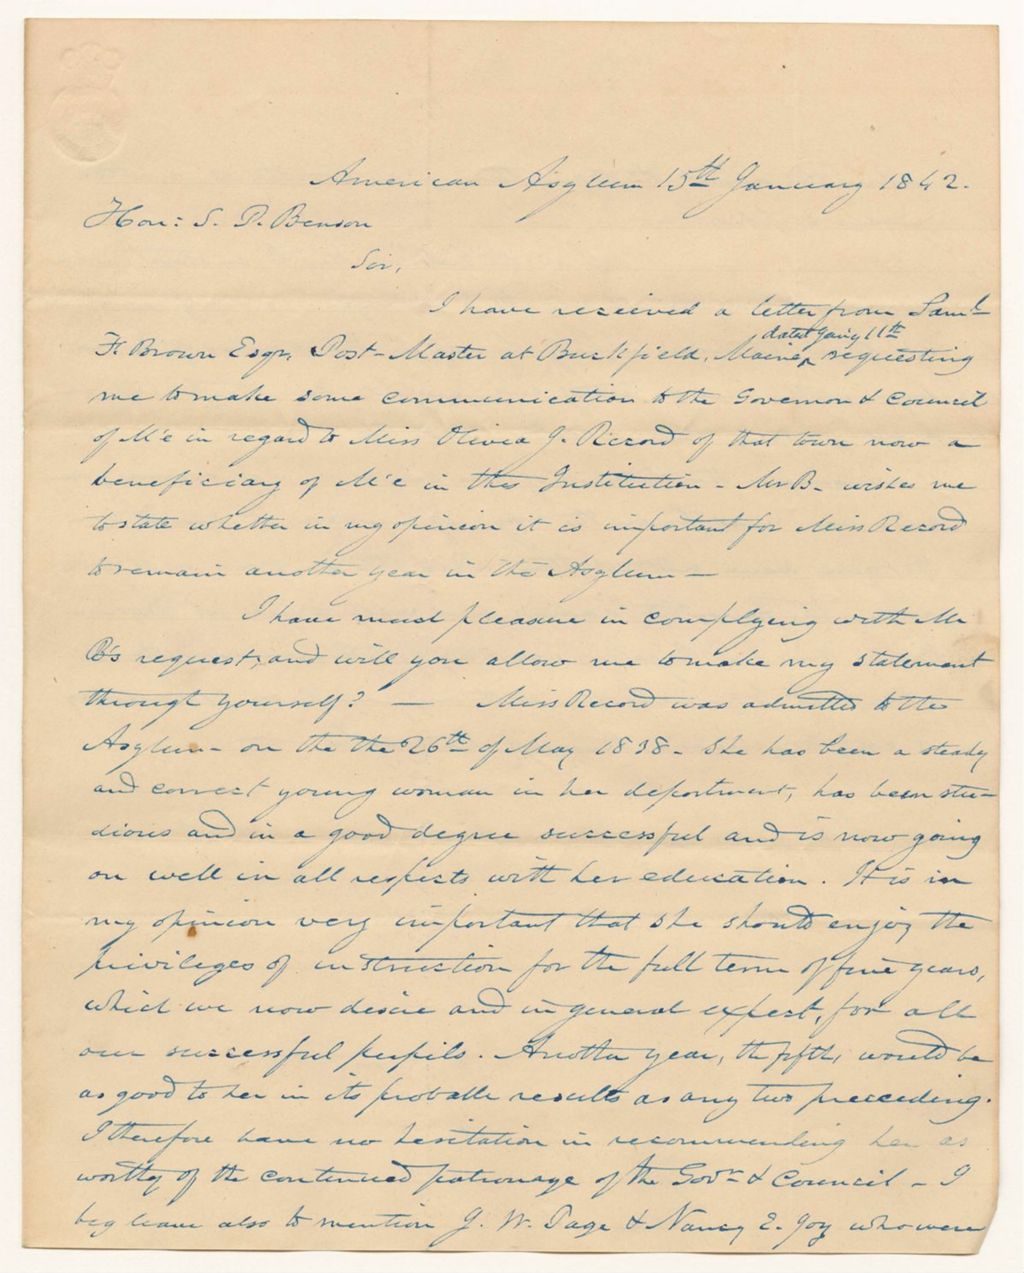 American Asylum 15th January 1842.
Hon: S. P. Benson
Sir,
I have received a letter from Saml
F. Brown Esqr, Post-Master at Buckfield, Maine, dated Jany 11th requesting
me to make some communication to the Governor & Council
of M'e in regard to Miss Olivea J. Record of that town now a
beneficiary of M'e in this Institution - Mr B. wishes me
to state whether in my opinion it is important for Miss Record
to remain another year in the Asylum —
I have much pleasure in complying with Mr
B's request, and will you allow me to make my statement
through yourself? — Miss Record was admitted to the
Asylum - on the the 26th of May 1838 - She has been a steady
and correct young woman in her deportment, has been stu-
dious and in a good degree successful and is now going
on well in all respects with her education. It is in
my opinion very important that she should enjoy the
privileges of instruction for the full term of five years,
which we now desire and in general expect, for all
our successful pupils. Another year, the fifth, would be
as good to her in its probable results as any two preceeding.
I therefore have no hesitation in recommending her as
worthy of the continued patronage of the Govr & Council - I
beg leave also to mention J. W. Page & Nancy E. Joy who were